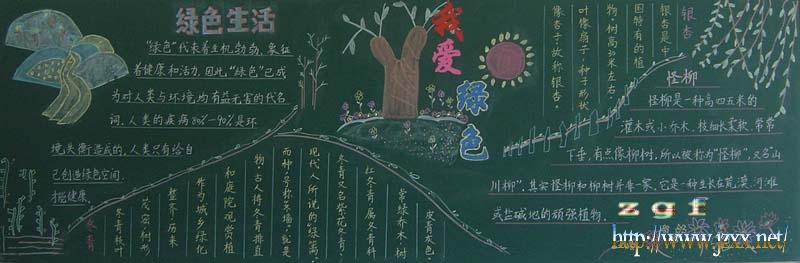 绿色生活
“绿色”代表着生机勃勃，象征
着健康和活力，因此，“绿色”已成
为对人类与环境均有益无害的代名
词，人类的疾病80%—90%是环
境失衡造成的，人类只有给自
己创造绿色空间，
才能健康。
我爱绿色
冬青
常绿乔木，树
皮灰色，
红冬青属冬青科
冬青又名紫花冬青，
现代人所说的“绿篱”，
而种，号称天墙，就是
物，古人将冬青排直
和庭院观赏植
作为城乡绿化
整齐，历来
茂密，树形
冬青枝叶
银杏
银杏是中
国特有的植
物，树高40米左右
叶像扇子，种子形状
像杏子故称银杏。
怪柳
怪柳是一种高四五米的
灌木或小乔木，枝细长柔软，常常
下垂，有点像柳树，所以被称为“怪柳”，又名“山
川柳”，其实怪柳和柳树并非一家，它是一种生长在荒漠、河滩
或盐碱地的顽强植物。
zgf
http://www.jzxx.net/